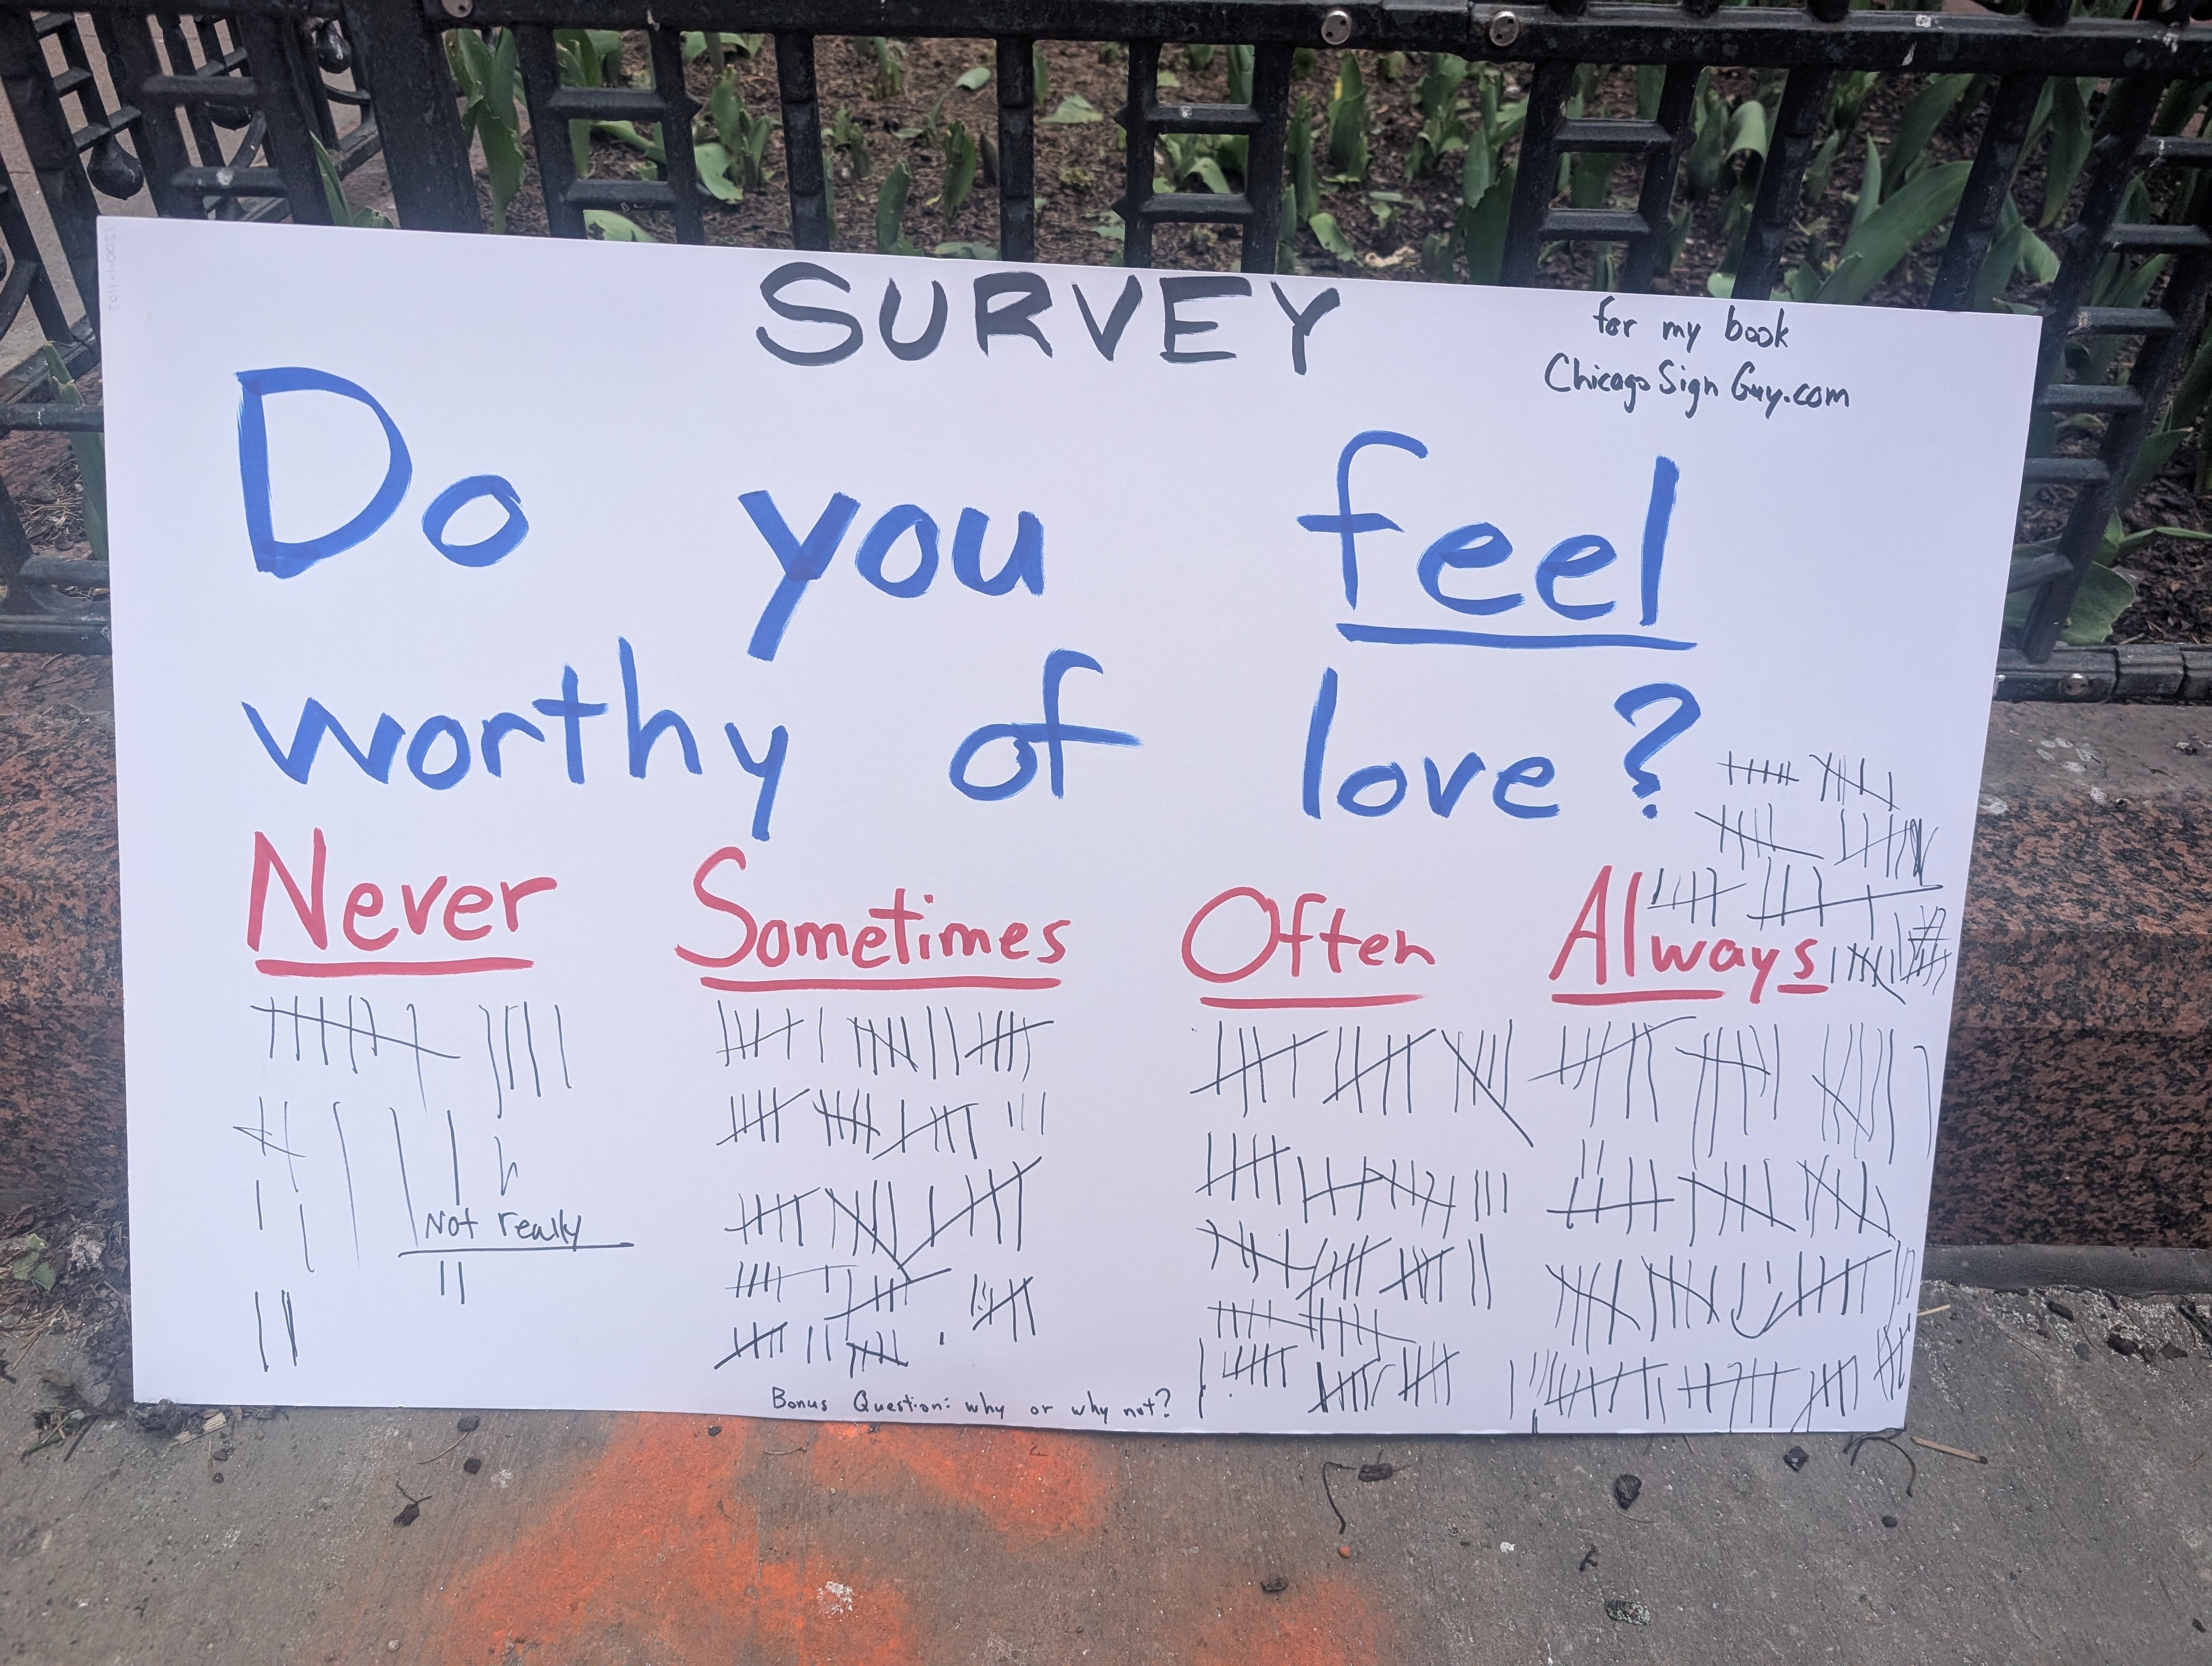 SURVEY
for my book
ChicagoSignGuy.com
Do you feel
worthy of love?
Never Sometimes Often Always
Not really
Bonus Question: why or why not?